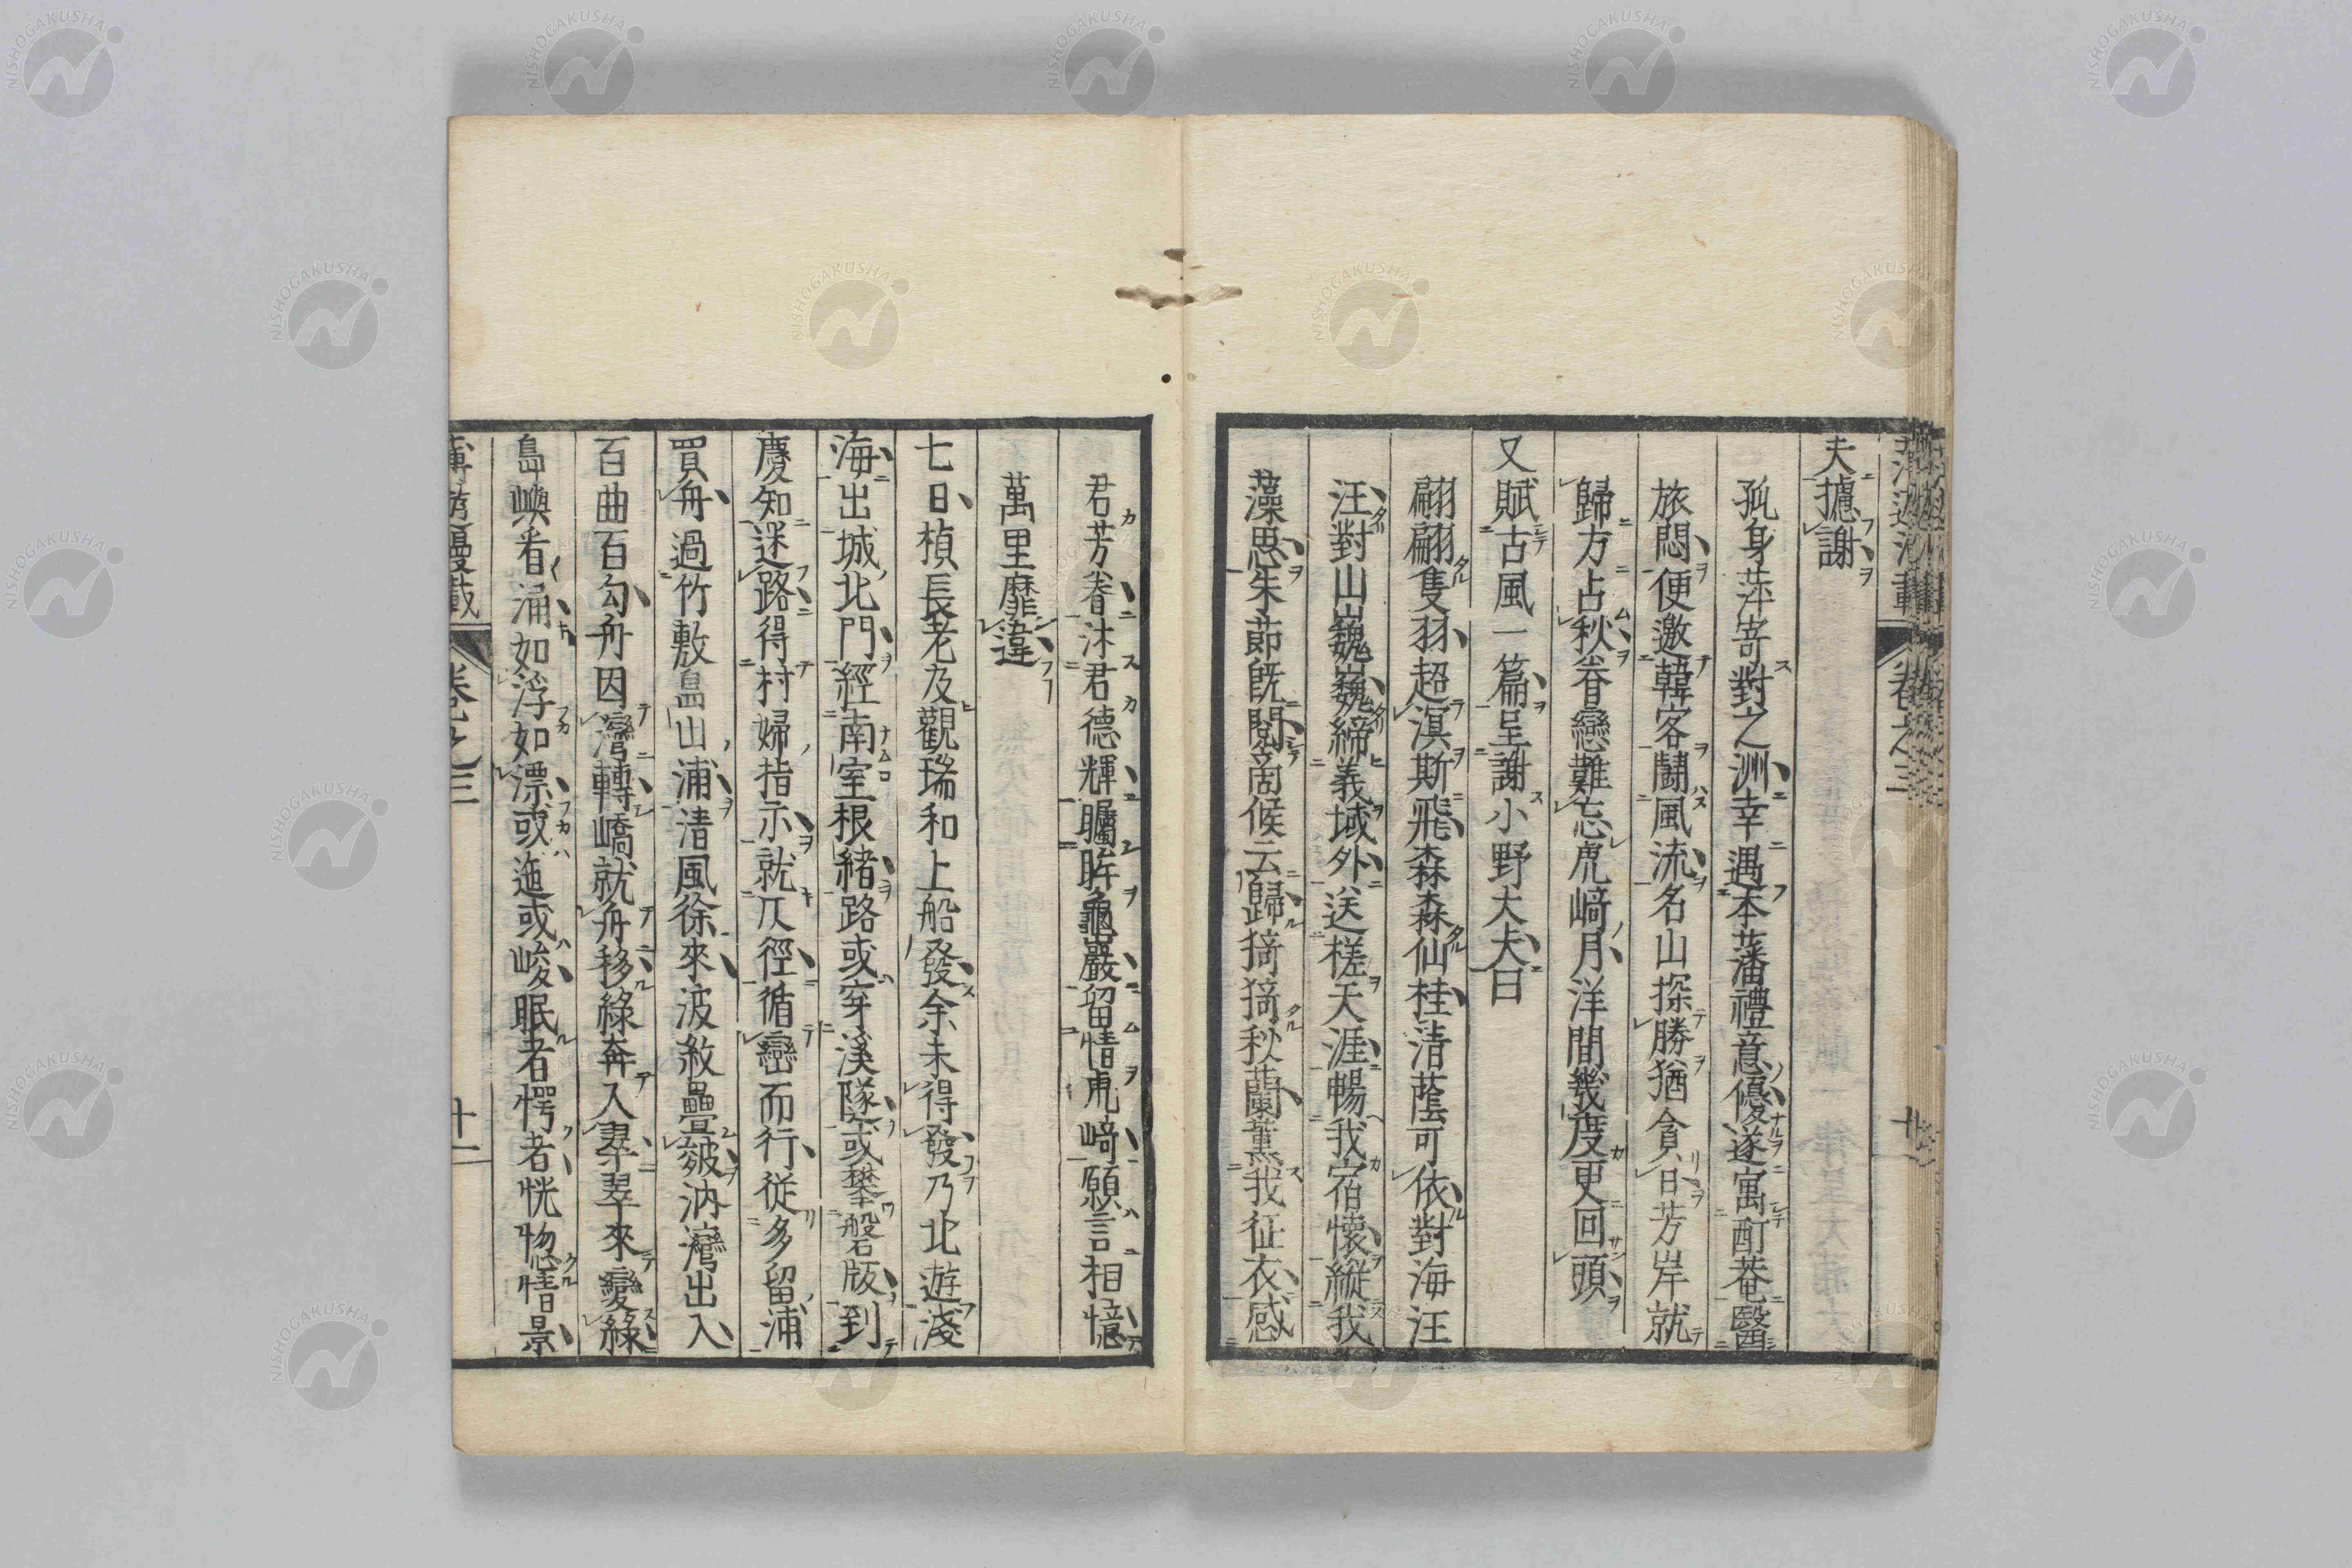 夫攄謝
孤身萍寄對之洲幸遇本藩禮意優遂寓酊菴醫
旅悶便邀韓客鬪風流名山探勝猶貪日芳岸就
歸方占秋眷戀難忘虎﨑月洋間幾度更回頭
又賦古風一篇呈謝小野大夫曰
翩翩隻羽超溟斯飛森森仙桂清蔭可依對海汪
汪對山巍巍締義域外送槎天涯暢我宿懷縱我
藻思朱節既閱商候云歸猗猗秋蘭薰我征衣感
君芳眷沐君德輝矚眸龜巖留情虎﨑願言相憶
萬里靡違
七日楨長老及觀瑞和上船發余未得發乃北遊淺
海出城北門經南室根緒路或穿溪隧或攀磐版到
慶知迷路得村婦指示就仄徑循巒而行従多留浦
買舟過竹敷島山浦清風徐來波紋疊皺汭灣出入
百曲百勾舟因灣轉嶠就舟移綠奔入翠翠來變綠
島嶼看涌如浮如漂或迤或峻眠者愕者恍惚情景
卷之三
十一
NISHOGAKUSHA